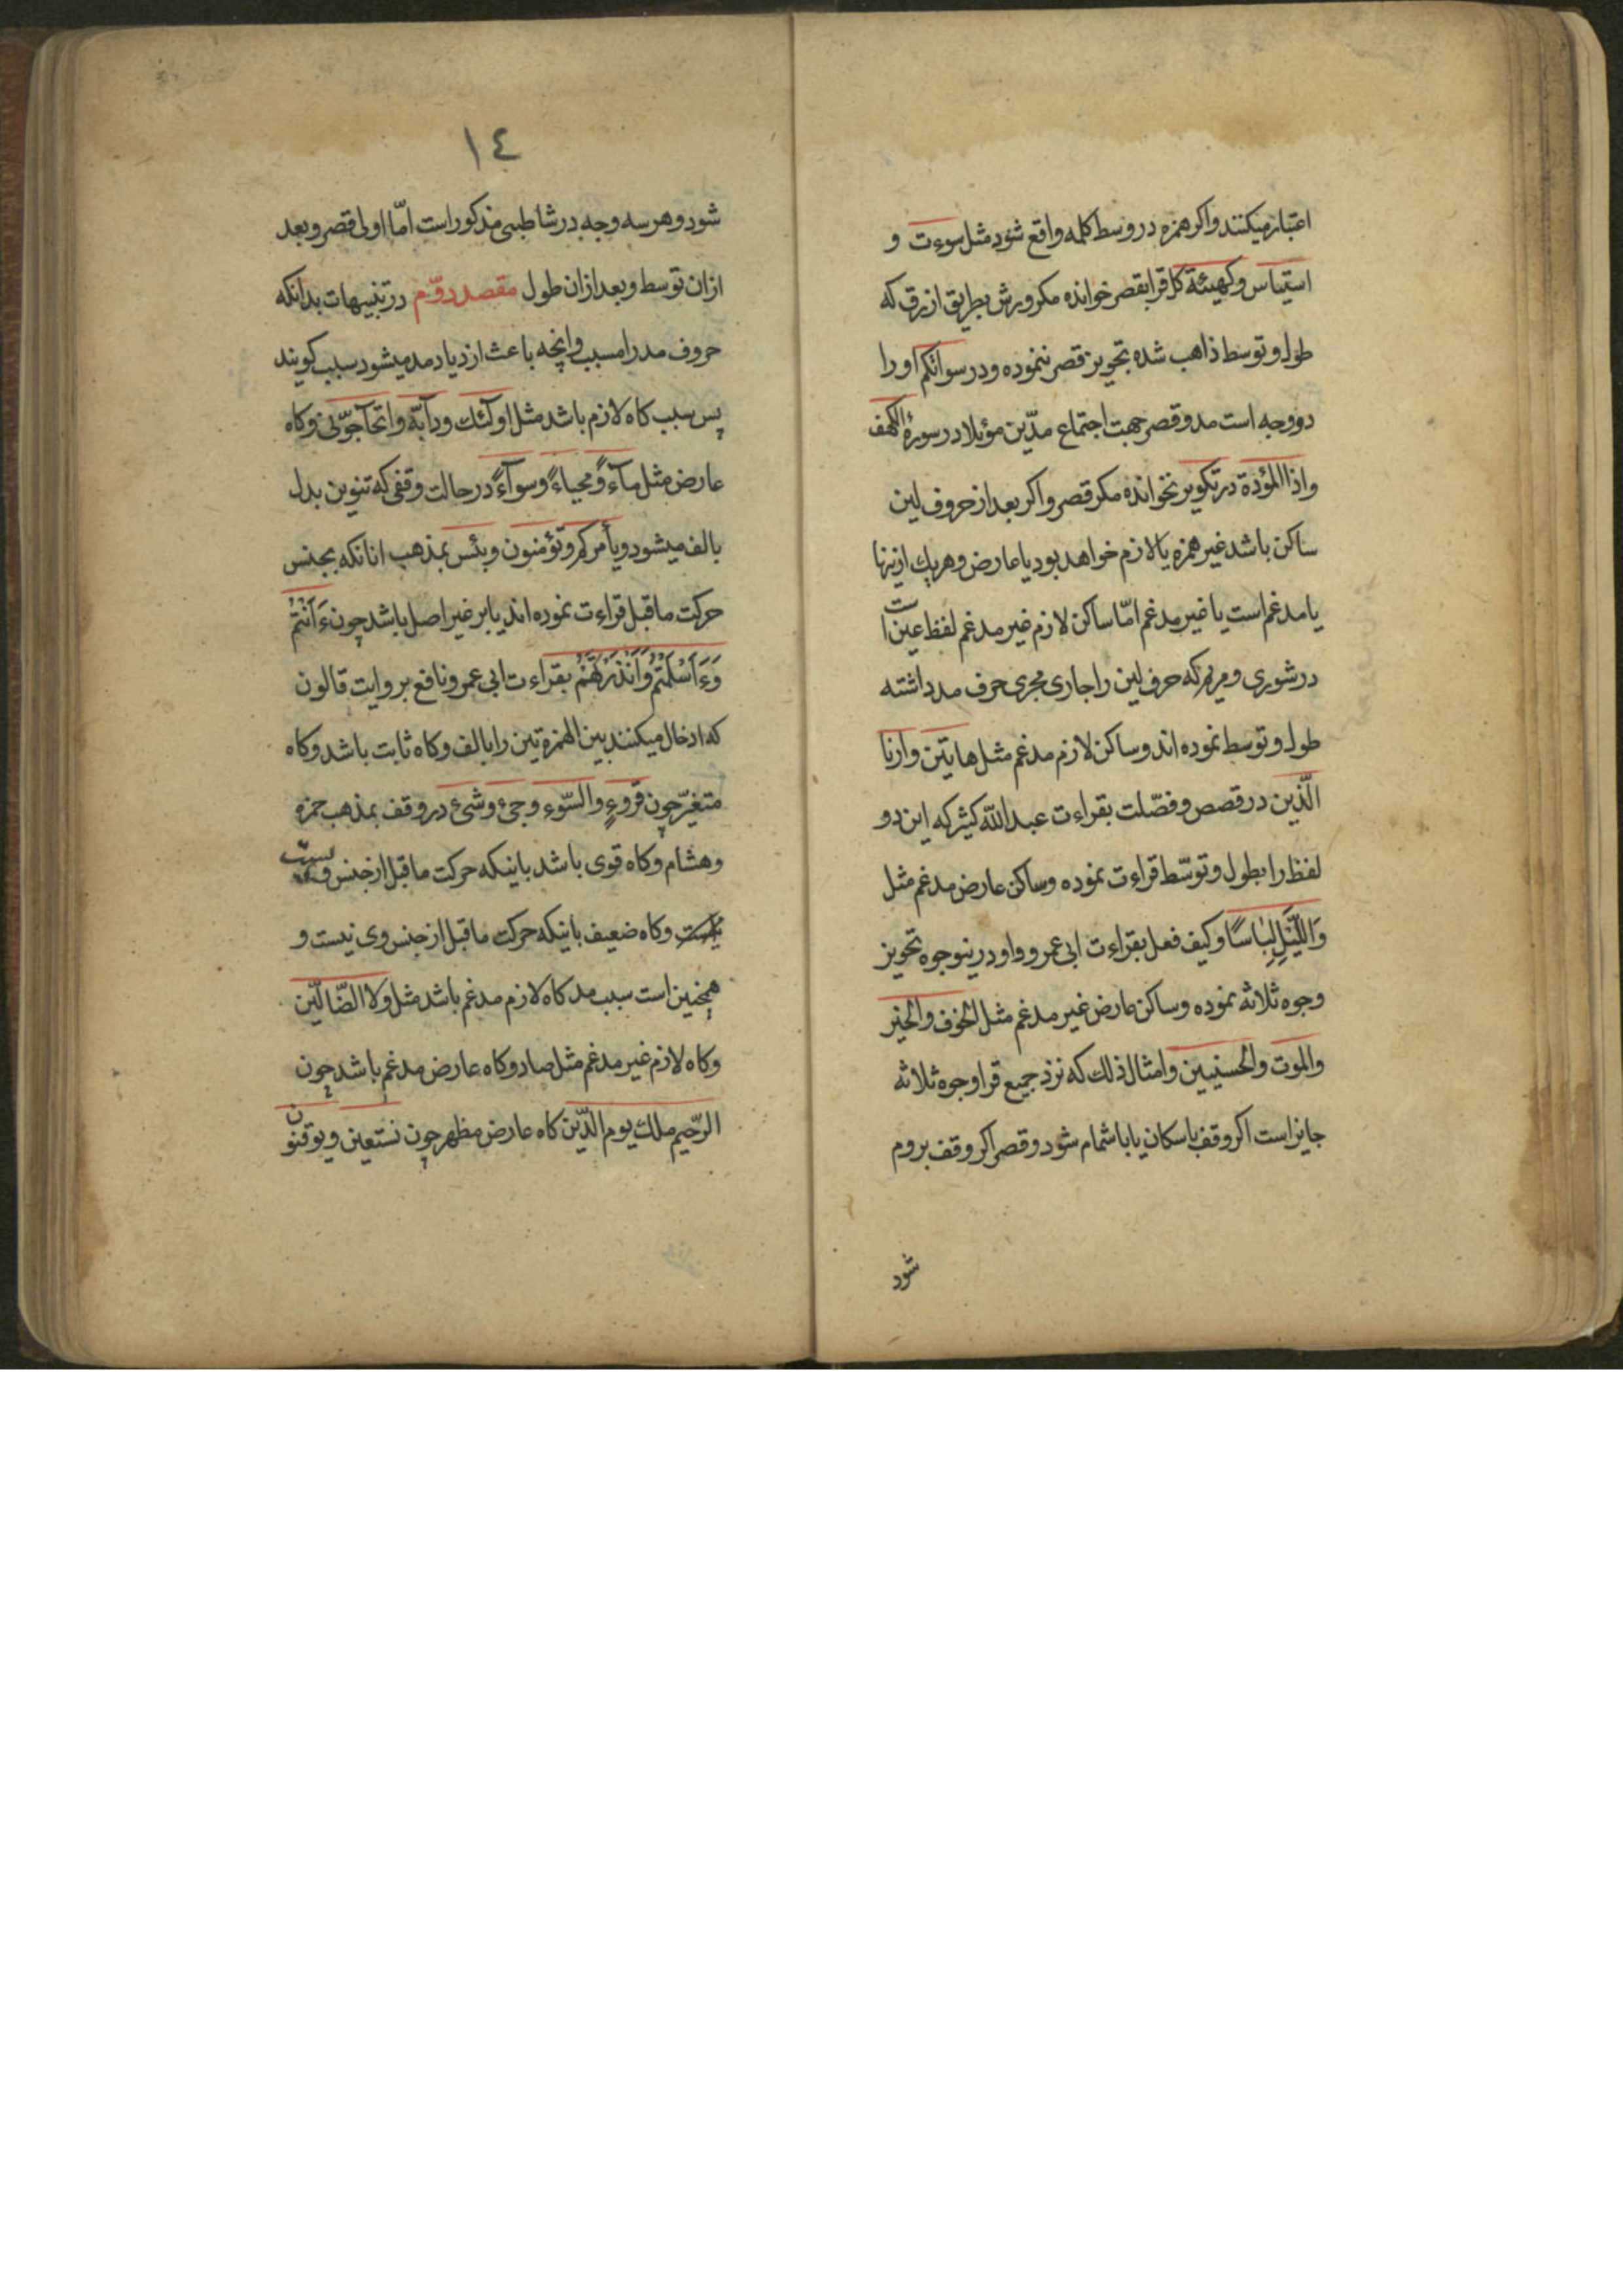 اعتبار میکنند واکر همزه در وسط کلمه واقع شود مثل سوءت و
استیئاس وکهیئة کل قرا بقصر خوانده مکر ورش بطریق ازرق که
طول وتوسط ذاهب شده تجویز قصر ننموده ودر سواتکم او را
دو وجه است مد وقصر جهت اجتماع مدّین مؤیلا در سورۀ الکهف
واذا المؤدة در تکویر نخوانده مکر قصر واکر بعد از حروف لین
ساکن باشد غیر همزه یا لازم خواهد بود یا عارض وهریك ازینها
یا مدغم است یا غیر مدغم امّا ساکن لازم غیر مدغم لفظ عین است
در شوری ومریم که حرف لین را جاری مجری حرف مد داشته
طول وتوسط نموده اند وساکن لازم مدغم مثل هاتین وارنا
الّذین در قصص وفصّلت بقراءت عبد الله کثیر که این دو
لفظ را بطول وتوسّط قراءت نموده وساکن عارض مدغم مثل
وَاللَّیْلِ لِبَاسًا وکیف فعل بقراءت ابی عمرو واو درینوجوه تجویز
وجوه ثلاثه نموده وساکن عارض غیر مدغم مثل الخوف والخیر
والموت والحسنیین وامثال ذلك که نزد جمیع قرا وجوه ثلاثه
جایز است اکر وقف باسکان یا باشمام شود وقصر اکر وقف بروم
شود
١٤
شود وهر سه وجه در شاطبی مذکور است امّا اولی قصر وبعد
ازان توسط وبعد ازان طول مقصد دوّم در تنبیهات بدانکه
حروف مد را مسبب وانچه باعث ازدیاد مد میشود سبب کویند
پس سبب کاه لازم باشد مثل اولٓئك ودآبّة واتحآجّونّی وکاه
عارض مثل مآءً ومحیاءً وسوآءً در حالت وقفی که تنوین بدل
بالف میشود ویأمرکم وتؤمنون وبئس بمذهب انانکه بجنس
حرکت ماقبل قراءت نموده اند یا بر غیر اصل باشد چون ءَاَنْتُمْ
وَءَاَسْلَمْتُمْ وَاَنْذَرْتَهُمْ بقراءت ابی عمر ونافع بروایت قالون
که ادخال میکنند بین الهمزتین را بالف وکاه ثابت باشد وکاه
متغیّر چون قروءٍ والسّوء وجئ وشئ در وقف بمذهب حمزه
وهشام وکاه قوی باشد بانیکه حرکت ماقبل از جنس
وکاه ضعیف بانیکه حرکت ماقبل از جنس وی نیست و
همچنین است سبب مد کاه لازم مدغم باشد مثل ولا الضّالّین
وکاه لازم غیر مدغم مثل صاد وکاه عارض مدغم باشد چون
الرّحیم ملك یوم الدّین کاه عارض مظهر چون نستعین ویوقنون